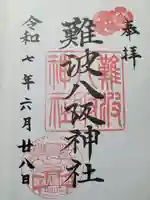 奉拝
難波八阪神社
令和七年六月廿八日
難波
神社